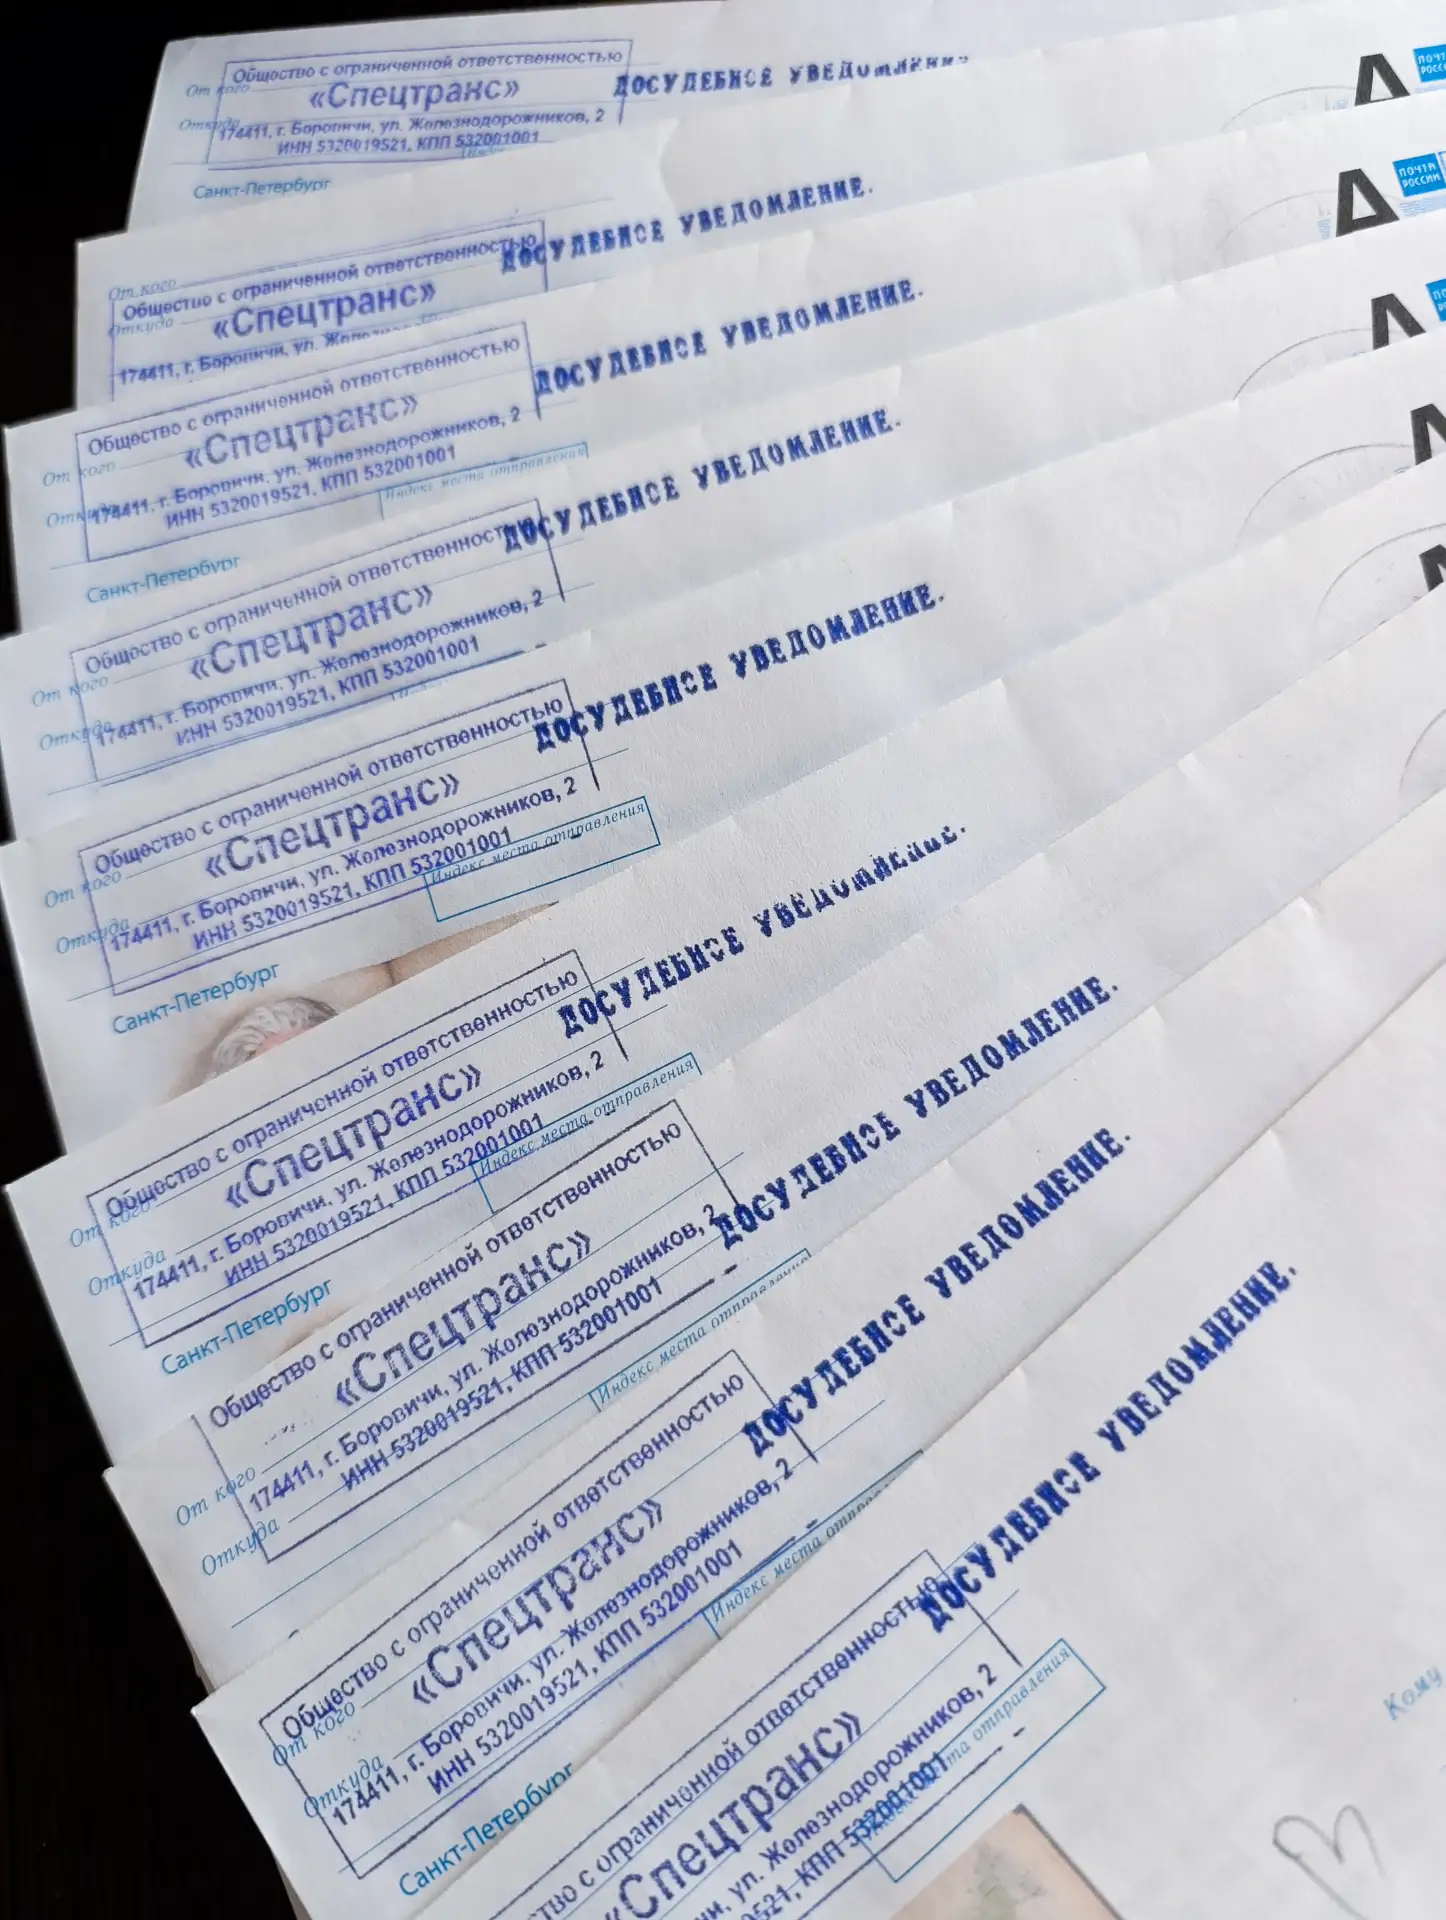 Общество с ограниченной ответственностью
От кого
«Спецтранс»
ДОСУДЕБНОЕ УВЕДОМЛЕНИЕ
Откуда
174411, г. Боровичи, ул. Железнодорожников, 2
ИНН 5320019521, КПП 532001001
Индекс
Санкт-Петербург
А
ПОЧТА
РОССИИ
От кого
Общество с ограниченной ответственностью
ДОСУДЕБНОЕ УВЕДОМЛЕНИЕ.
Откуда
«Спецтранс»
174411, г. Боровичи, ул.
А
ПОЧТА
РОССИИ
Общество с ограниченной ответственностью
ДОСУДЕБНОЕ УВЕДОМЛЕНИЕ.
От кого
«Спецтранс»
Откуда
174411, г. Боровичи, ул. Железнодорожников, 2
ИНН 5320019521, КПП 532001001
Индекс места отправления
Санкт-Петербург
А
Общество с ограниченной ответственностью
ДОСУДЕБНОЕ УВЕДОМЛЕНИЕ.
От кого
«Спецтранс»
Откуда
174411, г. Боровичи, ул. Железнодорожников, 2
ИНН 5320019521, КПП 532001001
А
Общество с ограниченной ответственностью
ДОСУДЕБНОЕ УВЕДОМЛЕНИЕ.
От кого
«Спецтранс»
Откуда
174411, г. Боровичи, ул. Железнодорожников, 2
ИНН 5320019521, КПП 532001001
Индекс места отправления
Санкт-Петербург
Общество с ограниченной ответственностью
ДОСУДЕБНОЕ УВЕДОМЛЕНИЕ.
От кого
«Спецтранс»
Откуда
174411, г. Боровичи, ул. Железнодорожников, 2
ИНН 5320019521, КПП 532001001
Индекс места отправления
Санкт-Петербург
Общество с ограниченной ответственностью
ДОСУДЕБНОЕ УВЕДОМЛЕНИЕ.
«Спецтранс»
От кого
174411, г. Боровичи, ул. Железнодорожников, 2
Откуда
ИНН 5320019521, КПП 532001001
Индекс места отправления
Общество с ограниченной ответственностью
ДОСУДЕБНОЕ УВЕДОМЛЕНИЕ.
От кого
«Спецтранс»
Откуда
174411, г. Боровичи, ул. Железнодорожников, 2
ИНН 5320019521, КПП 532001001
Индекс места
Санкт-Петербург
с ограниченной ответственностью
ДОСУДЕБНОЕ УВЕДОМЛЕНИЕ.
«Спецтранс»
ул. Железнодорожников, 2
КПП 532001001
отправления
Кому